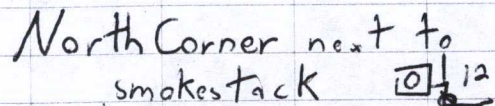 North Corner next to
smokestack 12